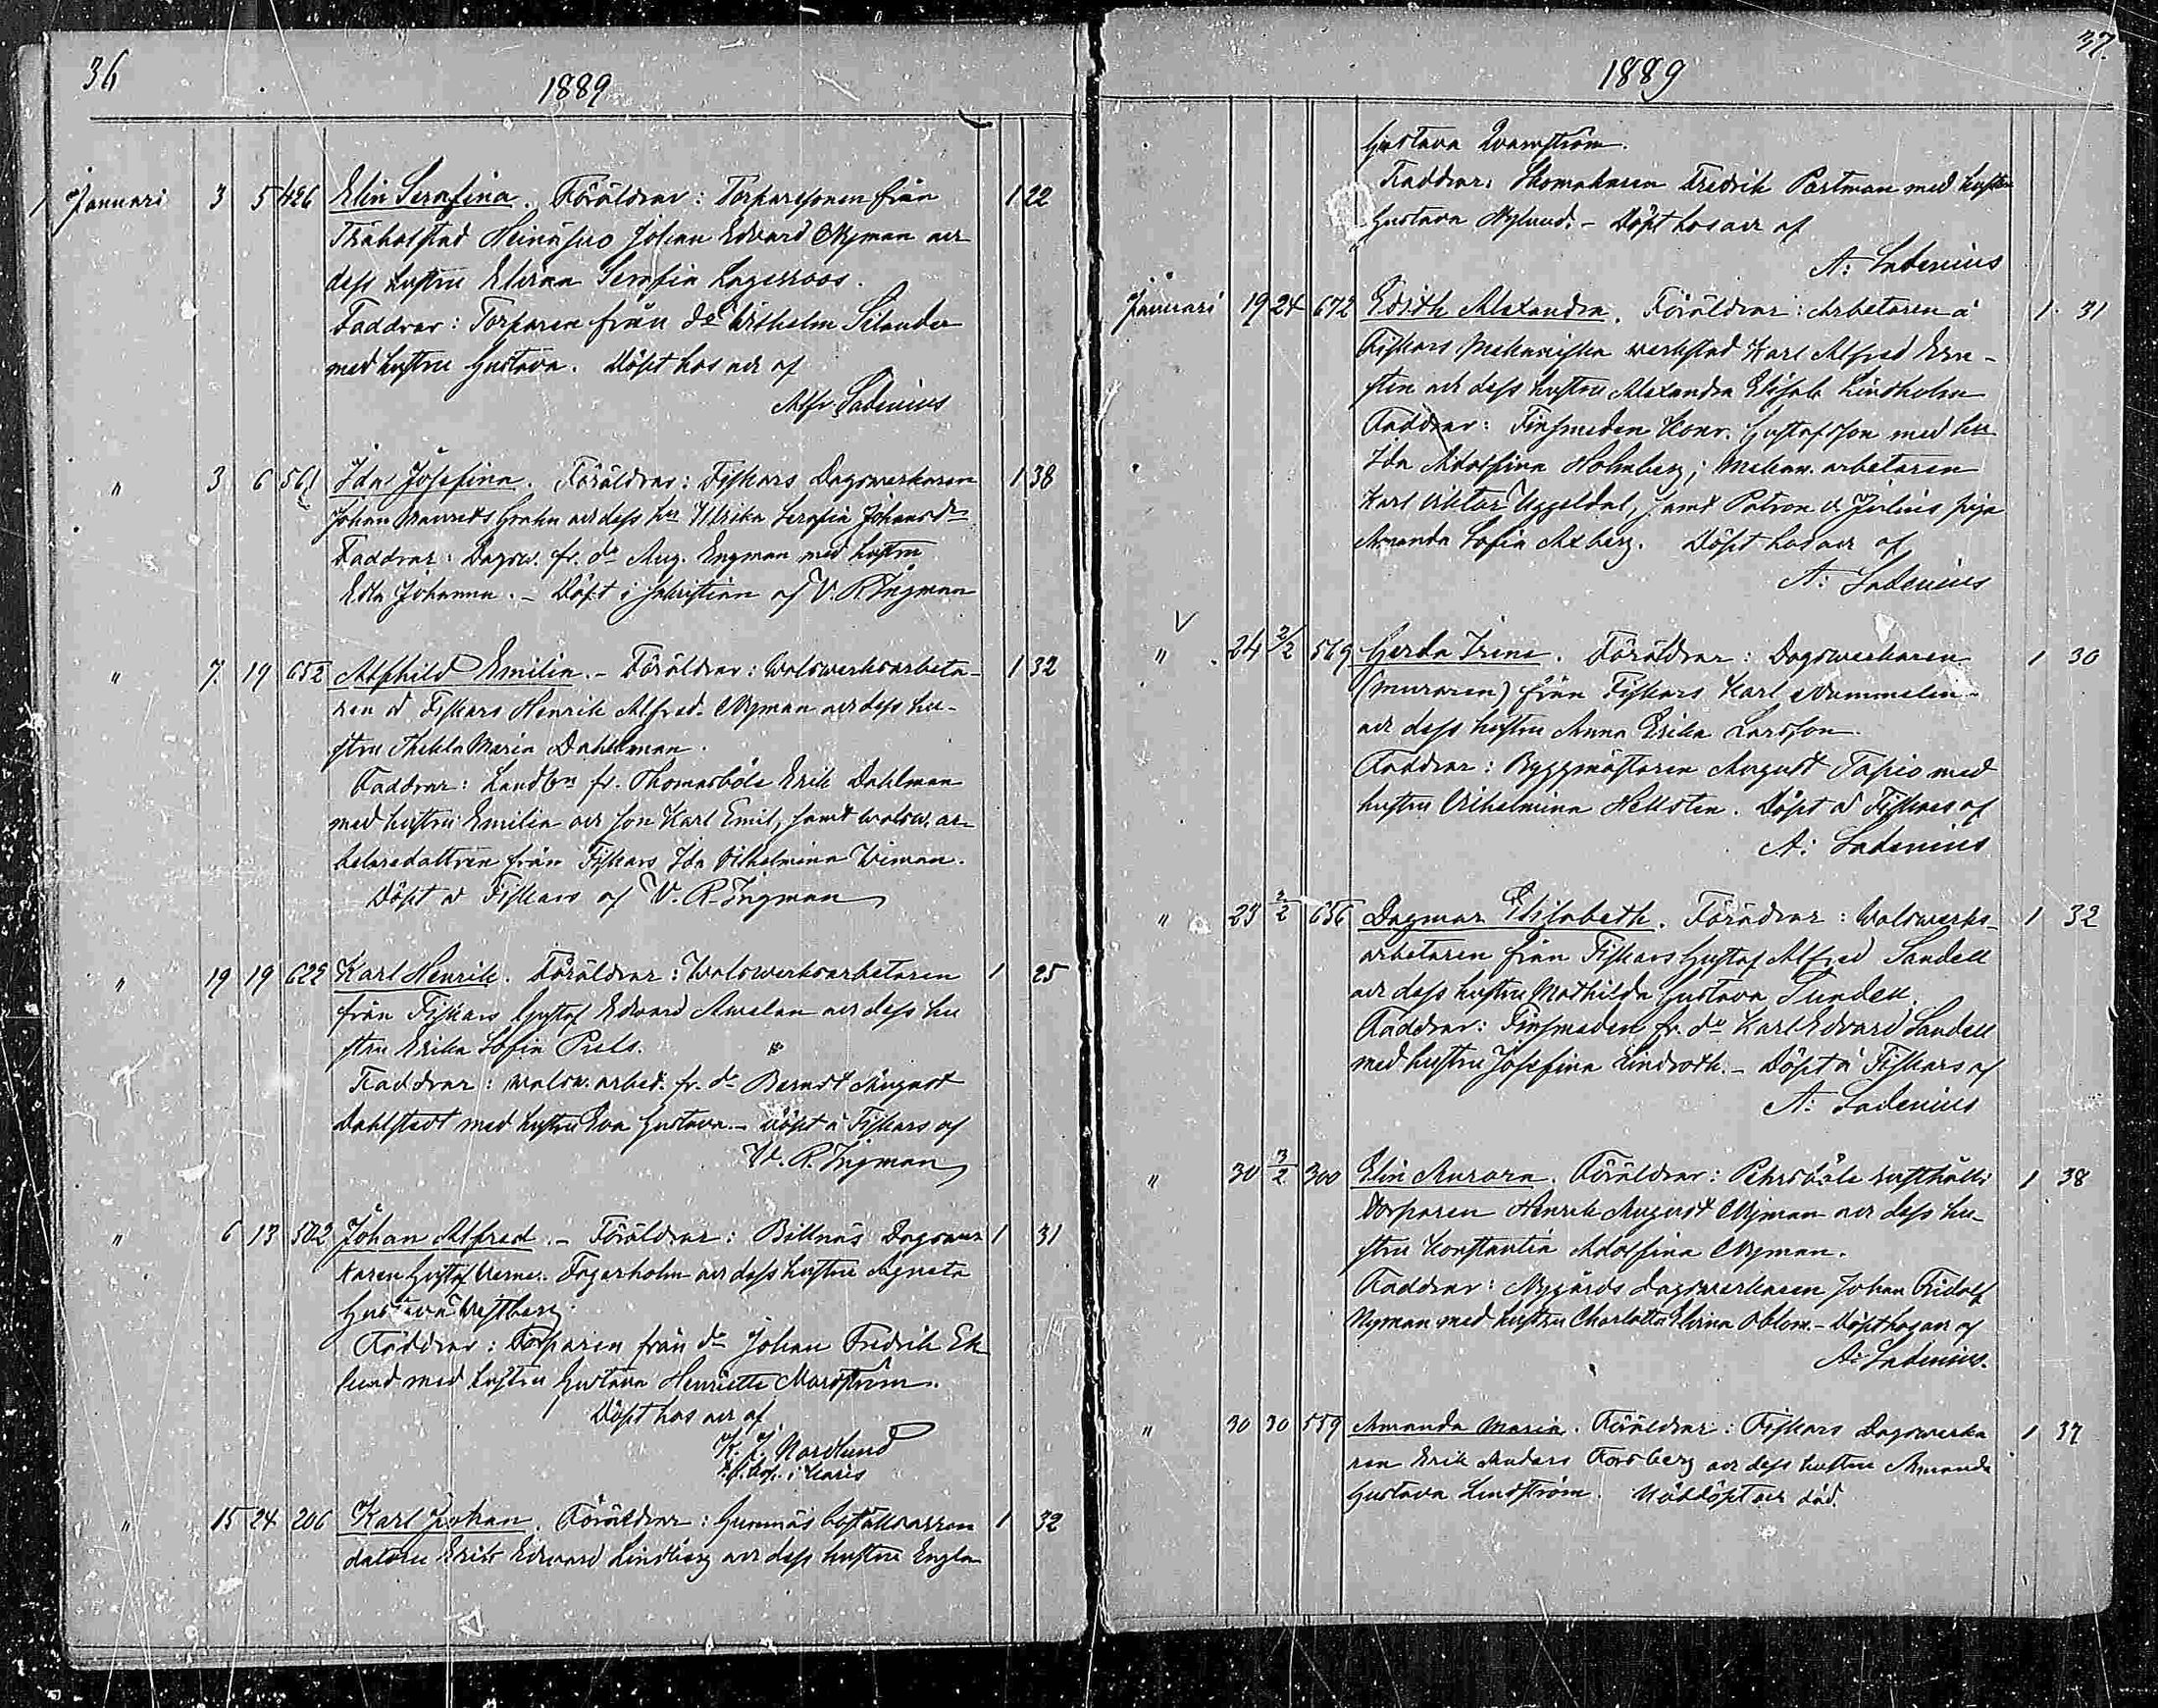 36
1889
Januari 3 5 426 Elin Serafina. Föräldrar: Torparesonen från 1 22
Träholstad Heinäsuo Johan Edvard Nyman och
dess hustru Elvina Serafia Lagerroos.
Faddrar: Torparen från do Wilhelm Silander
med hustru Gustava. Döpt hos och af
Alfr. Ladenius
" 3 6 561 Ida Josefina. Föräldrar: Fiskars Dagsverkaren 1 38
Johan Maurits Grahn och dess hu Ulrika Serafia Johansdr
Faddrar: Dagsv. fr. do Aug. Engman med hustru
Edla Johanna. - Döpt i sakristian af V. R. Ingman
" 7 19 652 Alfhild Emilia. - Föräldrar: Walsverksarbeta- 1 32
ren å Fiskars Henrik Alfred Nyman och dess hu-
stru Thekla Maria Dahlman.
Faddrar: Landbn fr. Thomasböle Erik Dahlman
med hustru Emilia och son Karl Emil, samt walsv. ar-
betaredottren från Fiskars Ida Vilhelmina Wiman.
Döpt å Fiskars af V. R. Ingman
" 19 19 622 Karl Henrik. Föräldrar: Walsverksarbetaren 1 25
från Fiskars Gustaf Edvard Amelan och dess hu
stru Erika Sofia Puls.
Faddrar: walsv. arbet. fr. do Berndt August
Dahlstedt med hustru Eva Gustava. - Döpt å Fiskars af
W. R. Ingman
" 6 13 502 Johan Alfred. - Föräldrar: Billnäs Dagsver 1 31
karen Gustaf Verner Fagerholm och dess hustru Agneta
Gustava Westberg.
Faddrar: Torparen från do Johan Fredrik Ek
lund med hustru Gustava Henriette Mardström.
Döpt hos och af
K. J. Nordlund
i Karis
" 15 24 206 Karl Johan. Föräldrar: Gunnäs Boställsarren 1 32
datorn Erik Edvard Lindberg och dess hustru Engla
37.
1889
Gustava Qvarnström.
Faddrar: Skomakaren Fredrik Portman med hustru
Gustava Nylund. - Döpt hos och af
A: Ladenius
Januari 19 24 672 Edith Alexandra. Föräldrar: Arbetaren å 1 31
Fiskars Mekaniska werkstad Karl Alfred Ern-
sten och dess hustru Alexandra Elisab. Lindholm
Faddrar: Finsmeden Konr. Gustafsson med hu
Ida Adolfina Holmberg; Mekan. arbetaren
Karl Viktor Uggeldal, samt Patron d. Julins piga
Amanda Sofia Axberg. Döpt hos och af
A: Ladenius
" 24 2/2 569 Gerda Irene. Föräldrar: Dagsverkaren 1 30
(muraren) från Fiskars Karl Nummelin
och dess hustru Anna Erika Larsson.
Faddrar: Byggmästaren August Tapio med
hustru Vilhelmina Hellsten. Döpt å Fiskars af
A: Ladenius
" 23 2/2 656 Dagmar Elisabeth. Föräldrar: Walsverks- 1 32
arbetaren från Fiskars Gustaf Alfred Sandell
och dess hustru Mathilda Gustava Sundell.
Faddrar: Finsmeden fr. do Karl Edvard Sandell
med hustru Josefina Lindroth. - Döpt å Fiskars af
A: Ladenius
" 30 3/2 300 Elin Aurora. Föräldrar: Pehrsböle rusthålls 1 38
Torparen Henrik August Nyman och dess hu-
stru Konstantia Adolfina Nyman.
Faddrar: Nygårds dagsverkaren Johan Fridolf
Nyman med hustru Charlotta Elvina Oblom. - Döpt hos och af
A: Ladenius.
" 30 30 559 Amanda Maria. Föräldrar: Fiskars Dagsverka 1 37
ren Erik Anders Forsberg och dess hustru Amanda
Gustava Lindström. Nöddöpt och död.